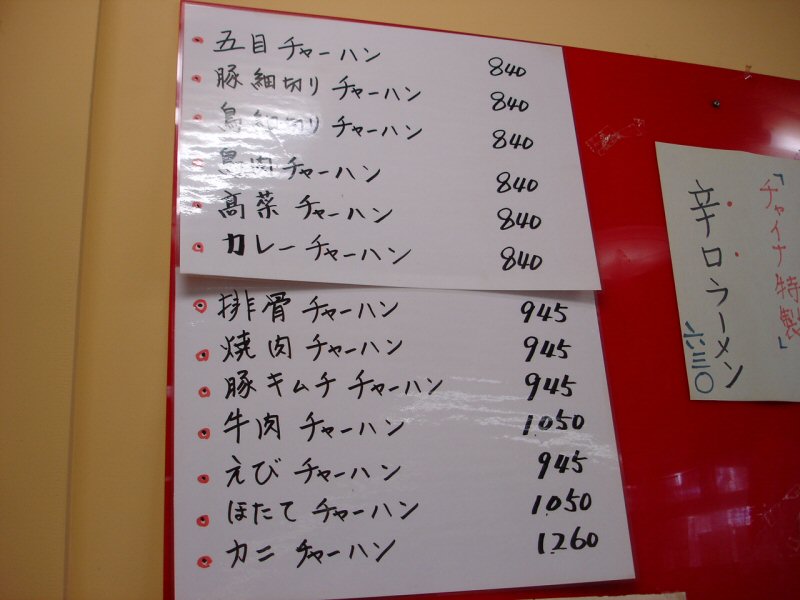 五目チャーハン 840
豚細切りチャーハン 840
鳥細切りチャーハン 840
鳥肉チャーハン 840
高菜チャーハン 840
カレーチャーハン 840
排骨チャーハン 945
焼肉チャーハン 945
豚キムチチャーハン 945
牛肉チャーハン 1050
えびチャーハン 945
ほたてチャーハン 1050
カニチャーハン 1260
「チャイナ特製」
辛口ラーメン
六三〇